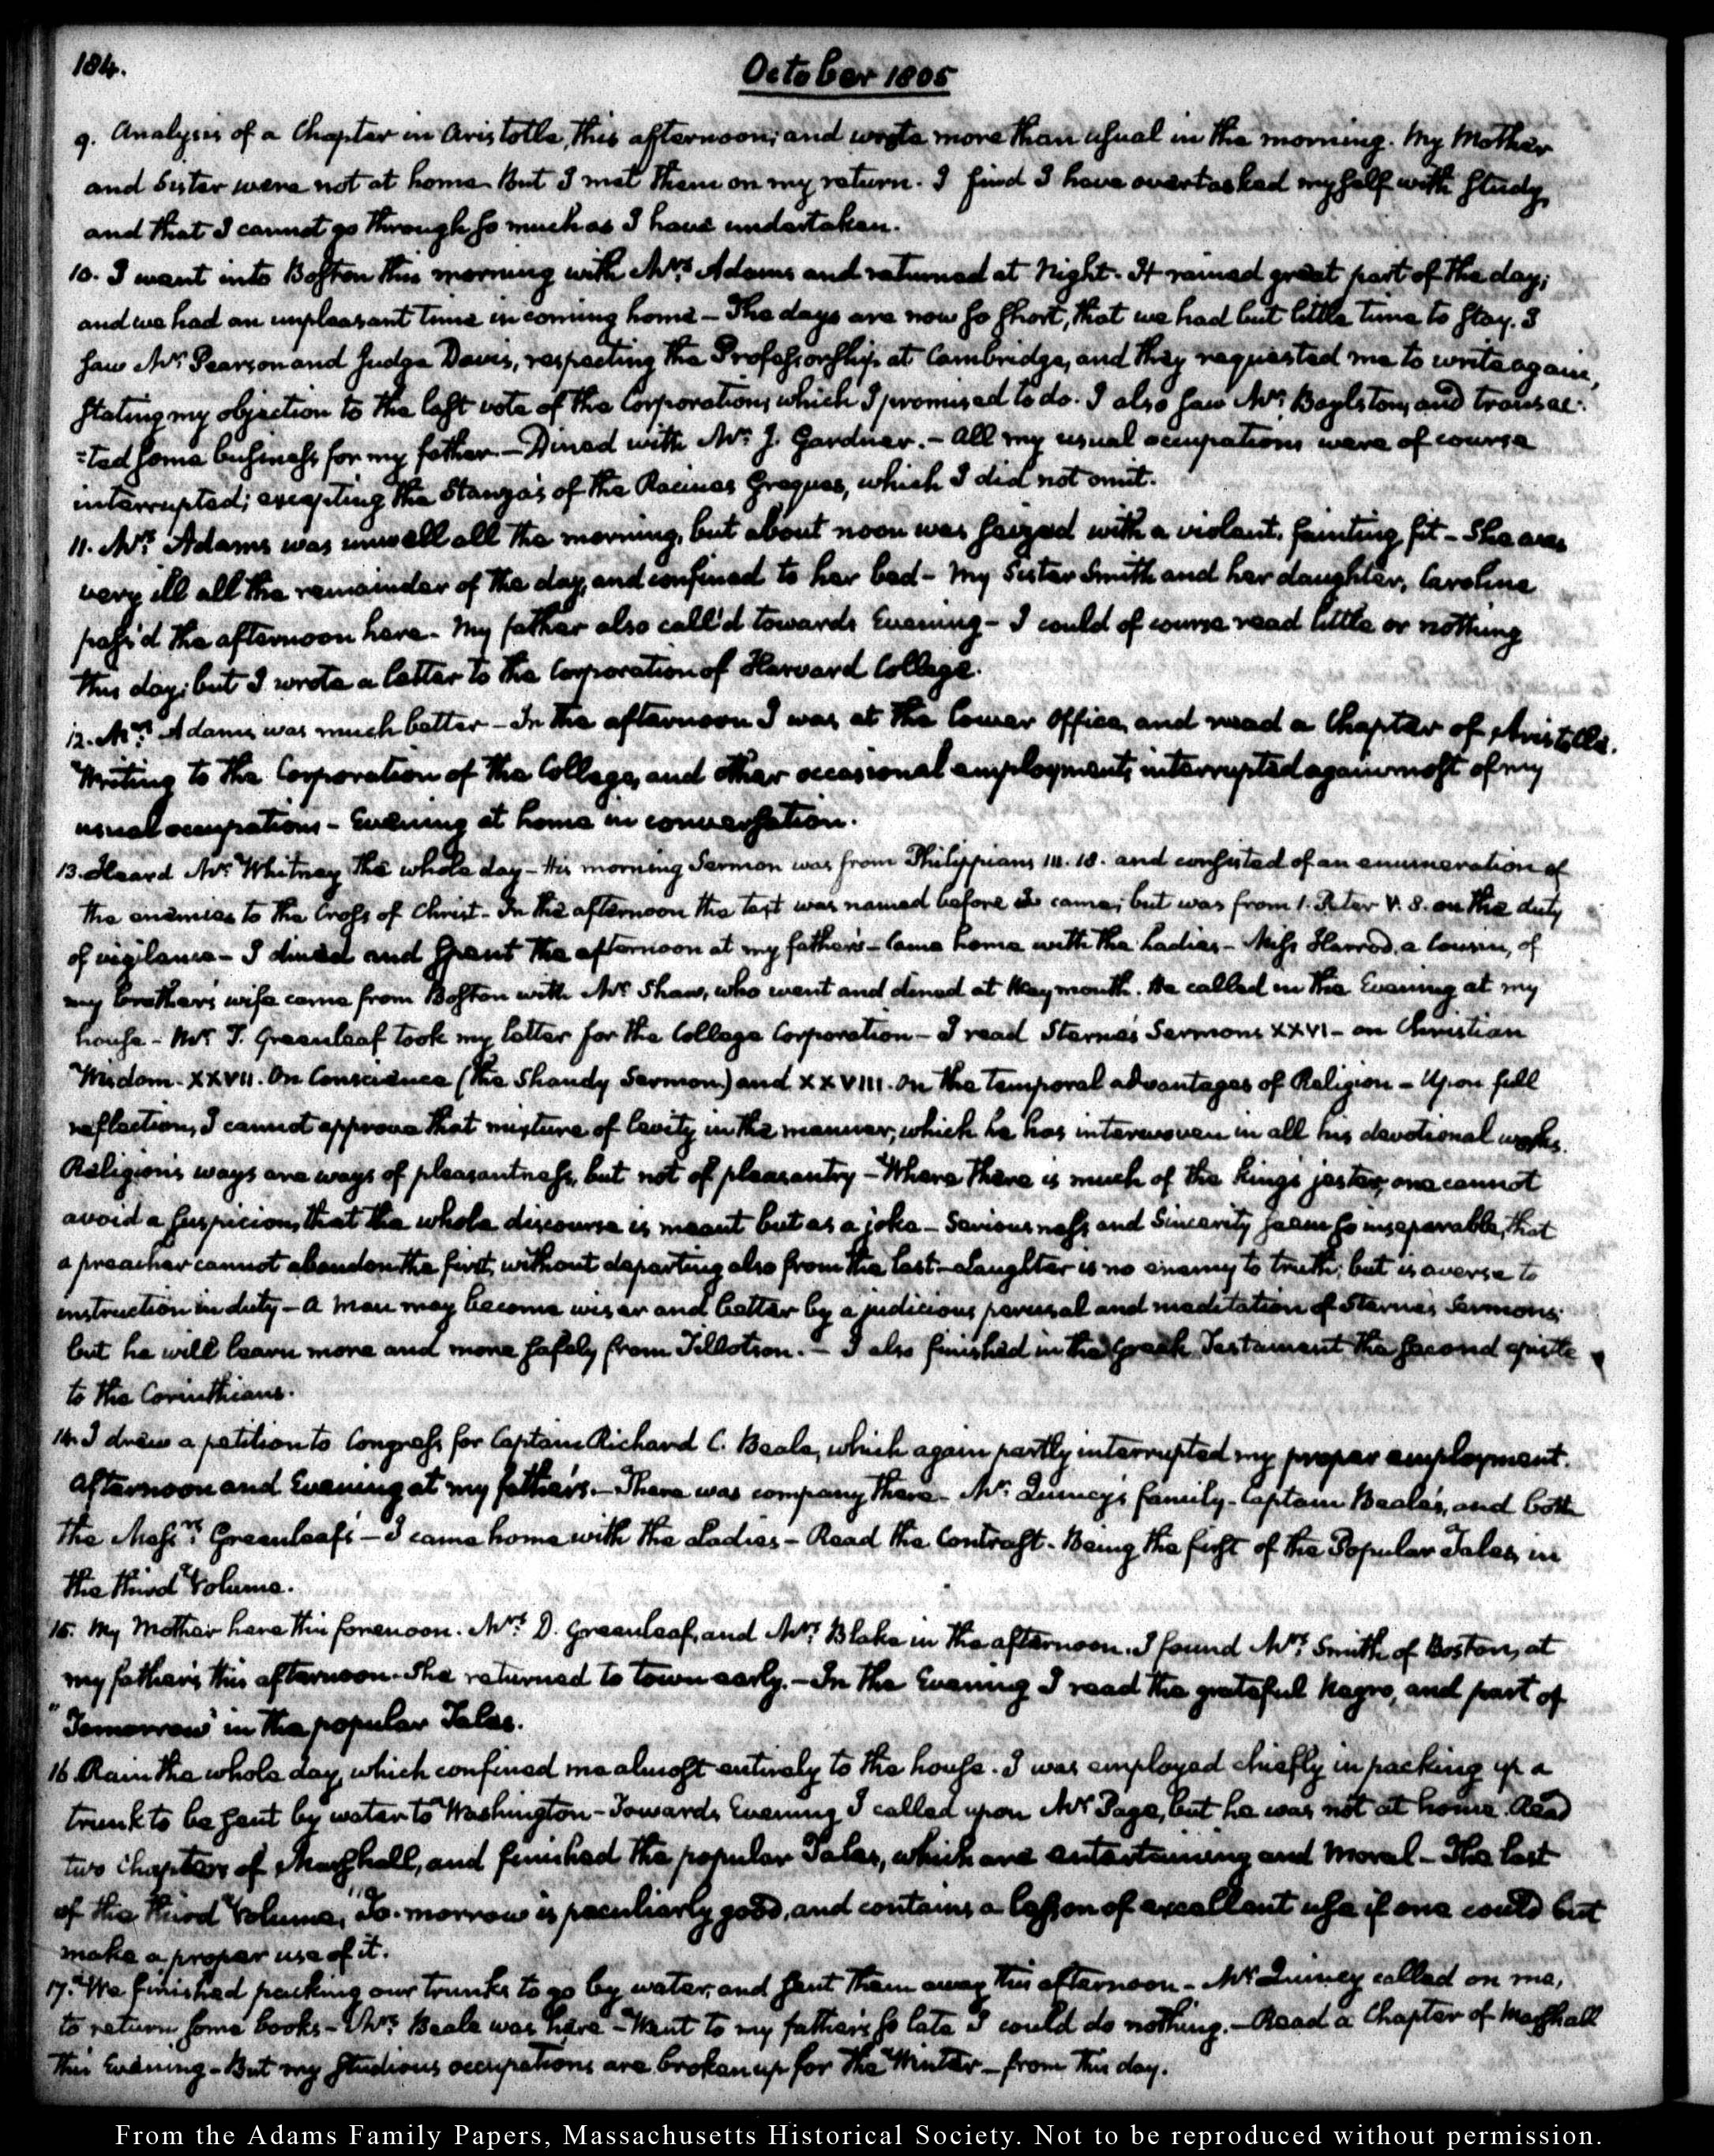 184.
October 1805
9. Analysis of a Chapter in Aristotle, this afternoon; and wrote more than usual in the morning. My Mother
and Sister were not at home But I met them on my return. I find I have overtasked myself with study,
and that I cannot go through so much as I have undertaken.
10. I went into Boston this morning with Mrs. Adams and returned at Night. It rained great part of the day;
and we had an unpleasant time in coming home — The days are now so short, that we had but little time to stay. I
saw Mr. Pearson and Judge Davis, respecting the Professorship at Cambridge, and they requested me to write again,
stating my objection to the last vote of the Corporation, which I promised to do. I also saw Mr. Boylston, and transac-
=ted some business for my father. — Dined with Mr. J. Gardner. — All my usual occupations were of course
interrupted; excepting the Stanza's of the Racines Greques, which I did not omit.
11. Mrs. Adams was unwell all the morning, but about noon was seized with a violent, fainting fit — She was
very ill all the remainder of the day, and confined to her bed — My Sister Smith and her daughter, Caroline
pass'd the afternoon here. My father also call'd towards Evening — I could of course read little or nothing
this day; but I wrote a letter to the Corporation of Harvard College.
12. Mrs. Adams, was much better — In the afternoon I was at the lower office, and read a Chapter of Aristotle.
Writing to the Corporation of the College, and other occasional employments, interrupted again most of my
usual occupations — Evening at home in conversation.
13. Heard Mr. Whitney the whole day — His morning Sermon was from Philippians III. 18. and consisted of an enumeration of
the enemies to the Cross of Christ — In the afternoon the text was named before I came; but was from 1. Peter V. 8. on the duty
of vigilance — I dined and spent the afternoon at my father's — Came home with the Ladies — Miss Harrod, a Cousin, of
my brother's wife came from Boston with Mr. Shaw, who went and dined at Weymouth. He called in the Evening at my
house — Mr. T. Greenleaf took my letter for the College Corporation — I read Sterne's Sermons XXVI — on Christian
Wisdom. XXVII. On Conscience (the Shandy Sermon) and XXVIII. On the temporal advantages of Religion — Upon full
reflection, I cannot approve that mixture of levity in the manner, which he has interwoven in all his devotional works.
Religion's ways are ways of pleasantness, but not of pleasantry — Where there is much of the king's jester, one cannot
avoid a suspicion, that the whole discourse is meant but as a joke — Seriousness and Sincerity seem so inseparable, that
a preacher cannot abandon the first, without departing also from the last — Laughter is no enemy to truth; but is averse to
instruction in duty — A Man may become wiser and better by a judicious perusal and meditation of Sterne's Sermons;
but he will learn more and more safely from Tillotson. — I also finished in the Greek Testament the second epistle
to the Corinthians.
14. I drew a petition to Congress for Captain Richard C. Beale, which again partly interrupted my proper employment.
Afternoon and Evening at my father's. — There was company there — Mr. Quincy's family — Captain Beale's, and both
the Messrs. Greenleafs — I came home with the Ladies — Read the Contrast. Being the first of the Popular Tales, in
the third Volume.
15. My Mother here this forenoon. Mrs. D. Greenleaf, and Mrs. Blake in the afternoon. I found Mrs. Smith of Boston, at
my father's this afternoon. She returned to town early. — In the Evening I read the grateful Negro, and part of
"Tomorrow" in the popular Tales.
16. Rain the whole day, which confined me almost entirely to the house. I was employed chiefly in packing up a
trunk to be sent by water to Washington — Towards Evening I called upon Mr. Page, but he was not at home. Read
two Chapters of Marshall, and finished the popular Tales, which are entertaining and Moral — The last
of the third Volume, To-morrow is peculiarly good, and contains a lesson of excellent use if one could but
make a proper use of it.
17. We finished packing our trunks to go by water, and sent them away this afternoon — Mr. Quincy called on me,
to return some books — Mrs. Beale was here — Went to my father's so late I could do nothing. — Read a Chapter of Marshall
this Evening — But my studious occupations are broken up for the Winter — from this day.
From the Adams Family Papers, Massachusetts Historical Society. Not to be reproduced without permission.